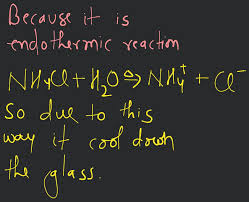 Because it is
endothermic reaction
NH4Cl + H2O ⇌ NH4+ + Cl-
So due to this
way it cool down
the glass.